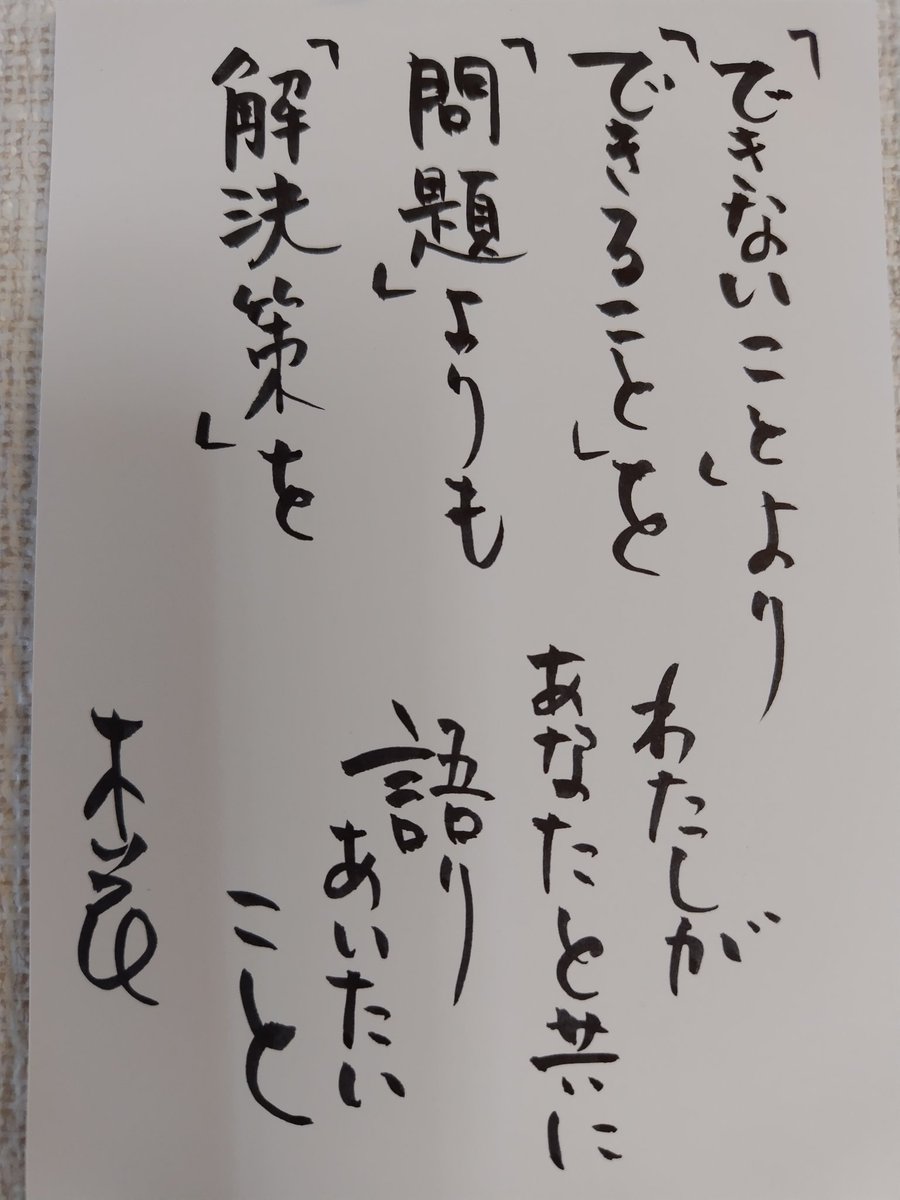 「できないこと」より
「できること」を
「問題」よりも
「解決策」を
わたしが
あなたと共に
語り
あいたい
こと